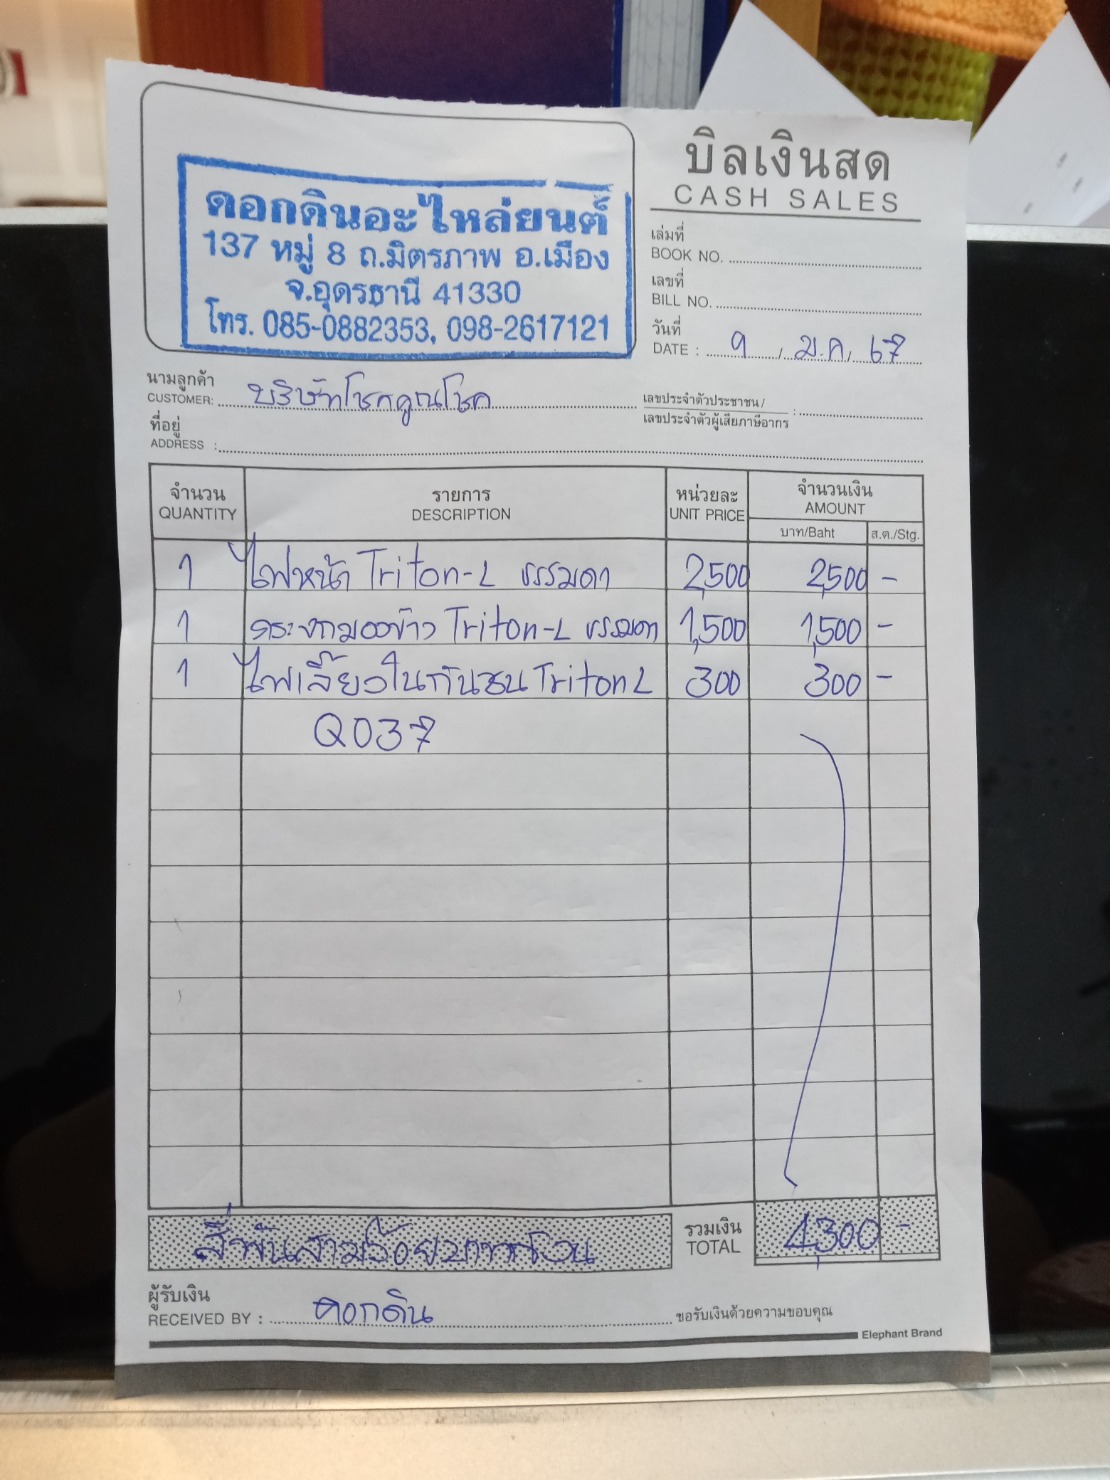 ดอกดินอะไหล่ยนต์
137 หมู่ 8 ถ.มิตรภาพ อ.เมือง
จ.อุดรธานี 41330
โทร. 085-0882353, 098-2617121
บิลเงินสด
CASH SALES
เล่มที่
BOOK NO.
เลขที่
BILL NO.
วันที่
DATE : 9 ม.ค. 67
นามลูกค้า
CUSTOMER: บริษัทโชคคูณโชค
เลขประจำตัวประชาชน /
เลขประจำตัวผู้เสียภาษีอากร :
ที่อยู่
ADDRESS :
จำนวน รายการ หน่วยละ จำนวนเงิน
QUANTITY DESCRIPTION UNIT PRICE AMOUNT
บาท/Baht ส.ต./Stg.
1 ไฟหน้า Triton-L ธรรมดา 2,500 2,500 -
1 กระจกมองข้าง Triton-L ธรรมดา 1,500 1,500 -
1 ไฟเลี้ยวในกันชน Triton L 300 300 -
Q037
สี่พันสามร้อยบาทถ้วน
รวมเงิน
TOTAL 4,300 -
ผู้รับเงิน
RECEIVED BY : ดอกดิน
ขอรับเงินด้วยความขอบคุณ
Elephant Brand